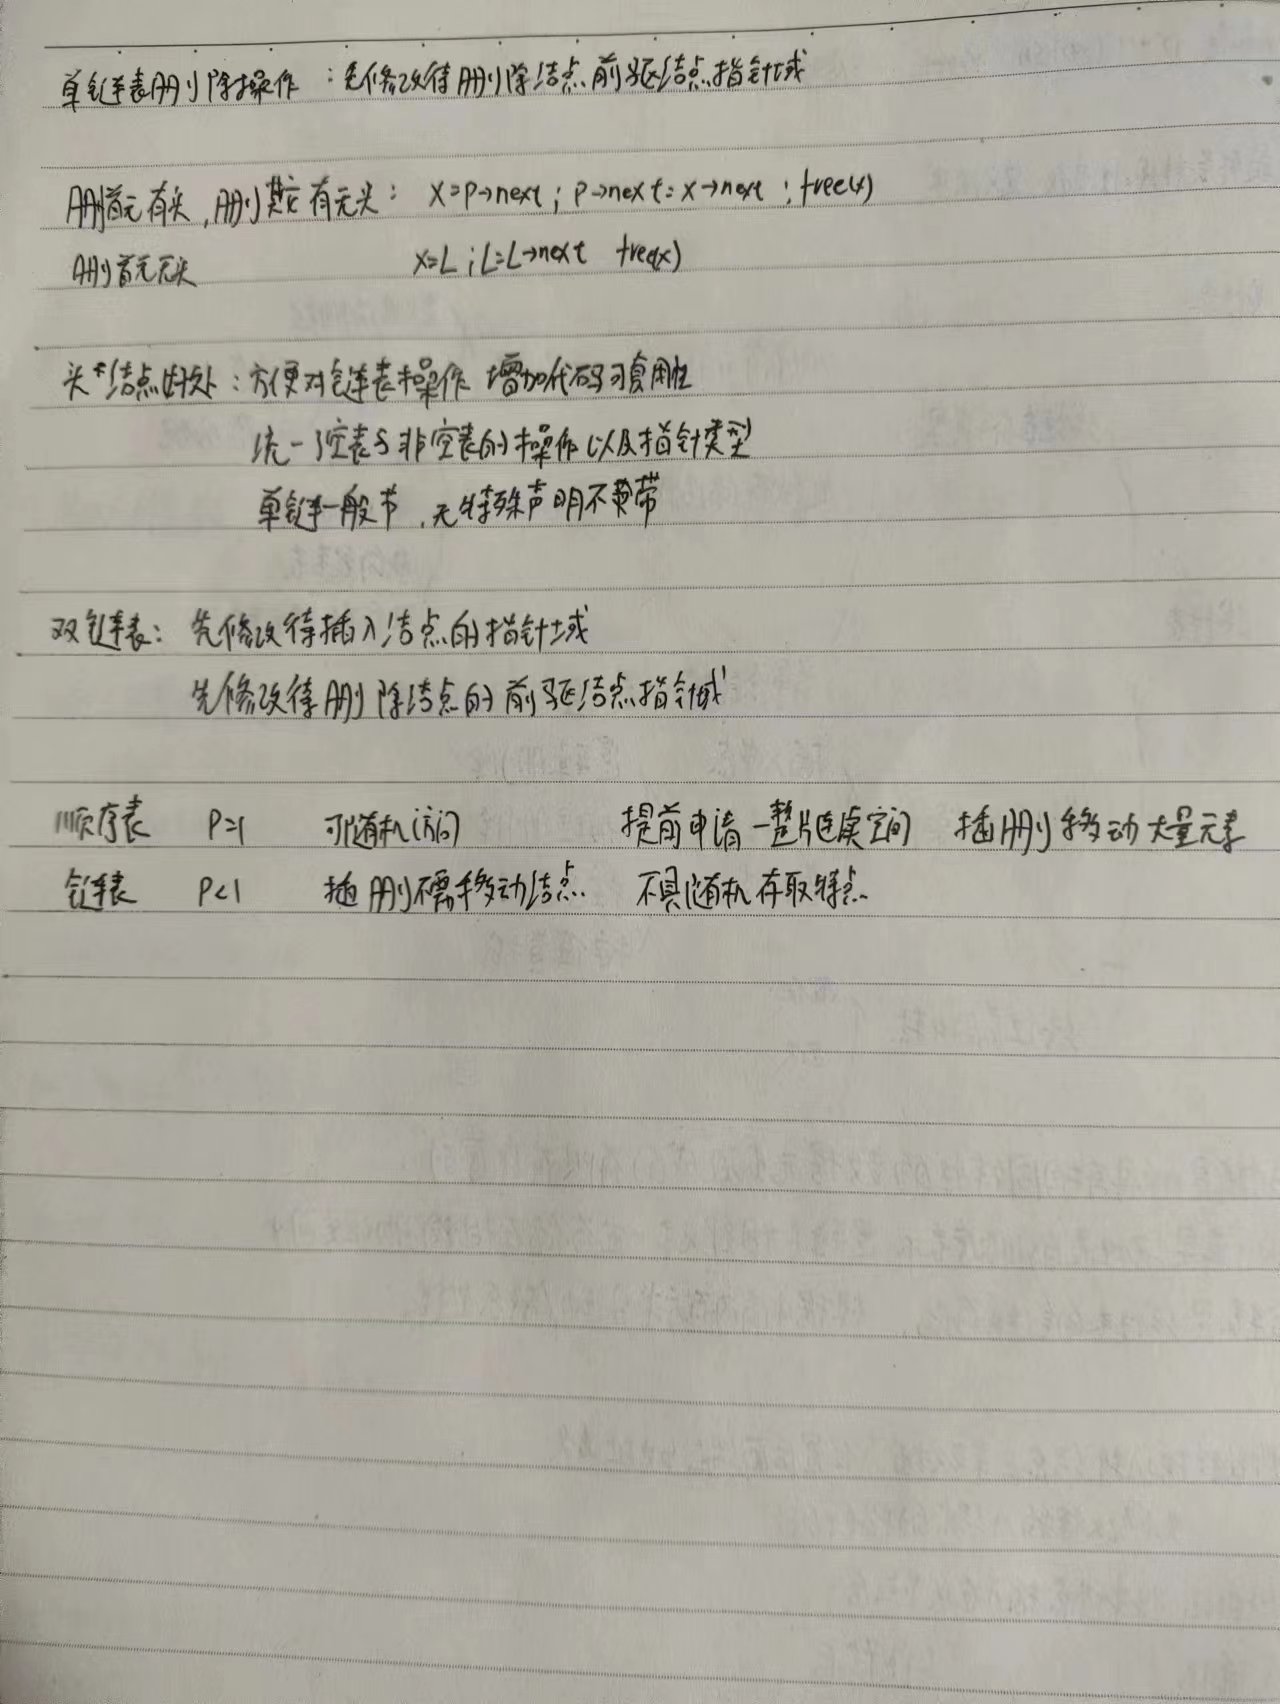 单链表删除操作：先修改待删除结点前驱结点指针域
删首元有头，删其它有无头： x=p→next；p→next=x→next；free(x)
删首元无头 x=L；L=L→next free(x)
头结点好处：方便对链表操作 增加代码复用性
统一了空表与非空表的操作以及指针类型
单链一般带，无特殊声明不要带
双链表：先修改待插入结点的指针域
先修改待删除结点的前驱结点指针域
顺序表 P=1 可随机访问 提前申请一整片连续空间 插删移动大量元素
链表 P<1 插删不需移动结点 不具随机存取特点